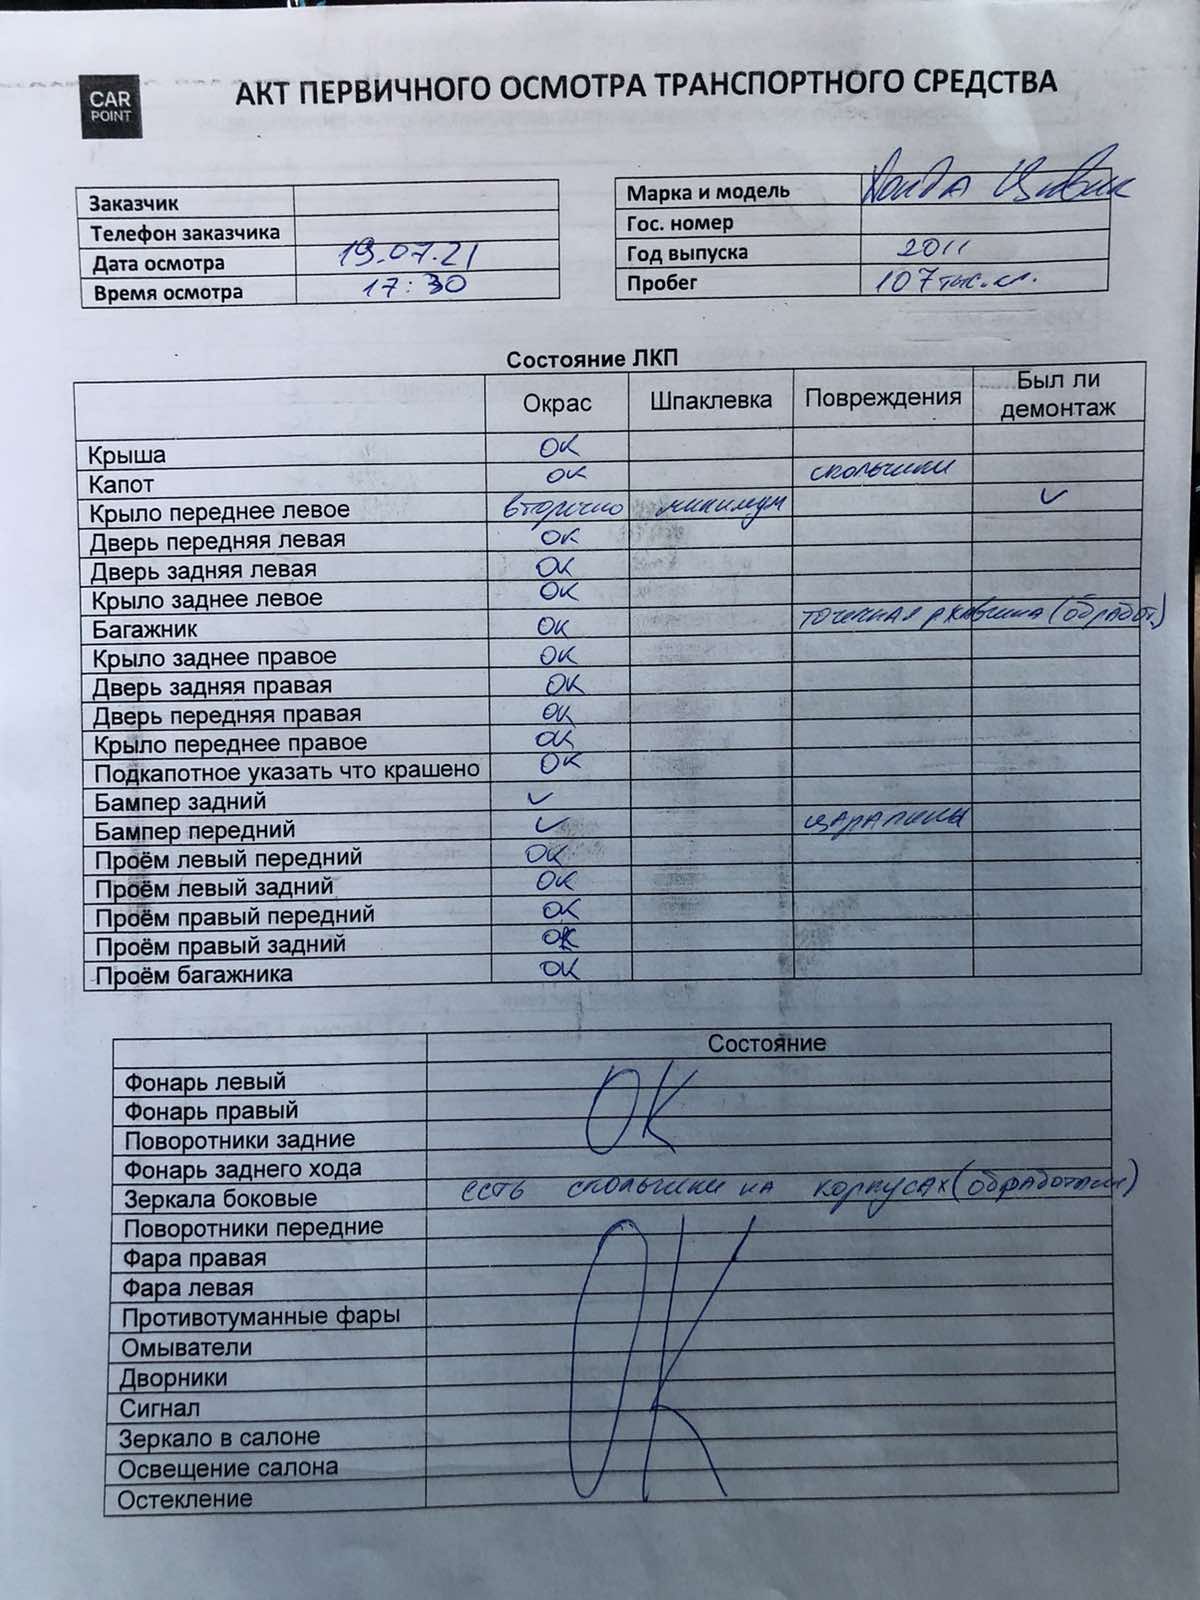 CAR
POINT
АКТ ПЕРВИЧНОГО ОСМОТРА ТРАНСПОРТНОГО СРЕДСТВА
Заказчик
Телефон заказчика
Дата осмотра 19.07.21
Время осмотра 17:30
Марка и модель Хонда Цивик
Гос. номер
Год выпуска 2011
Пробег 107 тыс. км.
Состояние ЛКП
Окрас Шпаклевка Повреждения Был ли демонтаж
Крыша ОК
Капот ОК сколышки
Крыло переднее левое вторично минимум ✓
Дверь передняя левая ОК
Дверь задняя левая ОК
Крыло заднее левое ОК
Багажник ОК точечная ржавчина (обработ.)
Крыло заднее правое ОК
Дверь задняя правая ОК
Дверь передняя правая ОК
Крыло переднее правое ОК
Подкапотное указать что крашено ОК
Бампер задний ✓
Бампер передний ✓ царапины
Проём левый передний ОК
Проём левый задний ОК
Проём правый передний ОК
Проём правый задний ОК
Проём багажника ОК
Состояние
Фонарь левый
Фонарь правый ОК
Поворотники задние
Фонарь заднего хода
Зеркала боковые есть сколышки на корпусах (обработали)
Поворотники передние
Фара правая
Фара левая
Противотуманные фары
Омыватели ОК
Дворники
Сигнал
Зеркало в салоне
Освещение салона
Остекление